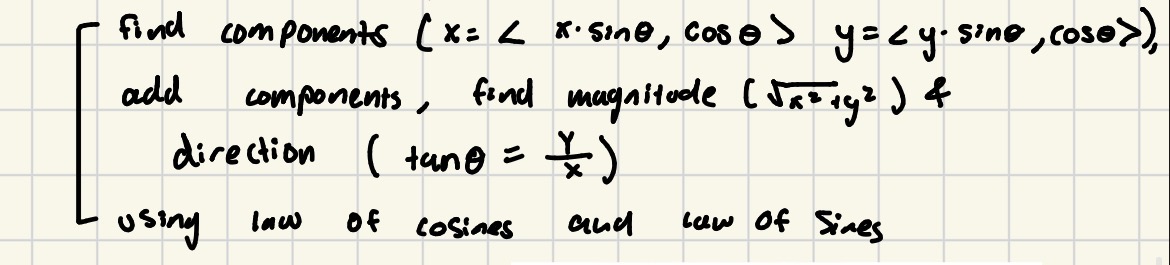 find components (x = < x·sinθ, cosθ > y = < y·sinθ, cosθ>),
add components, find magnitude (√x²+y²) &
direction (tanθ = Y/x)
using law of cosines and law of sines